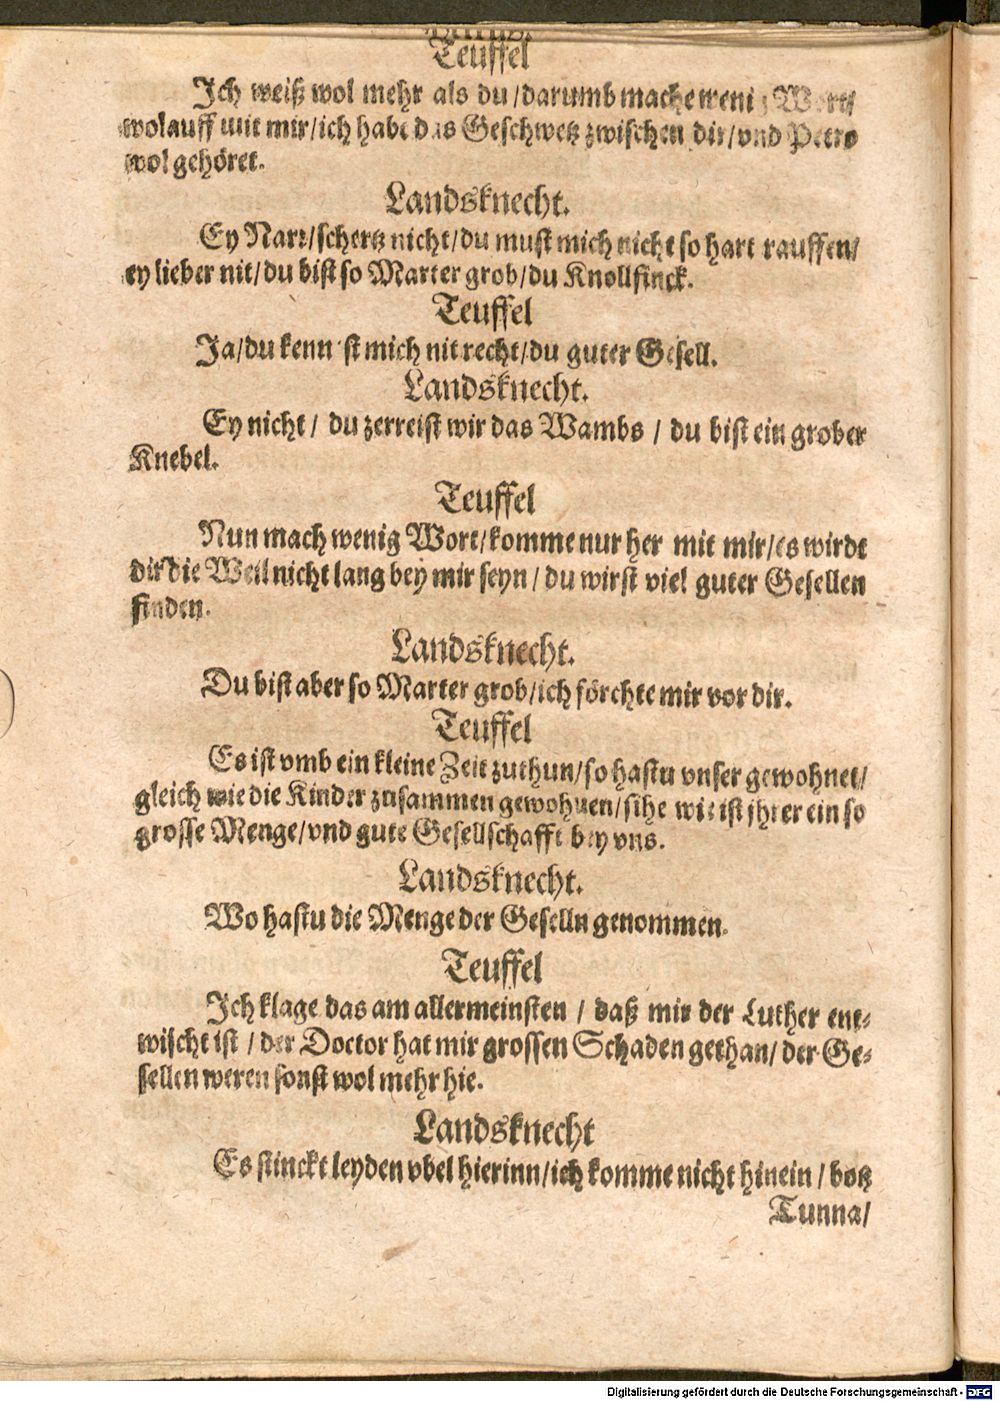 Teuffel
Ich weiß wol mehr als du/darumb mache wenig Wort/
wolauff mit mir/ich habe das Geschwetz zwischen dir/vnd Petro
wol gehöret.
Landsknecht.
Ey Narr/schertz nicht/du must mich nicht so hart rauffen/
ey lieber nit/du bist so Marter grob/du Knollfinck.
Teuffel
Ja/du kennst mich nit recht/du guter Gesell.
Landsknecht.
Ey nicht / du zerreist wir das Wambs / du bist ein grober
Knebel.
Teuffel
Nun mach wenig Wort/komme nur her mit mir/es wirdt
dir die Weil nicht lang bey mir seyn / du wirst viel guter Gesellen
finden.
Landsknecht.
Du bist aber so Marter grob/ich förchte mir vor dir.
Teuffel
Es ist vmb ein kleine Zeit zuthun/so hastu vnser gewohnet/
gleich wie die Kinder zusammen gewohnen/sihe wie ist jhrer ein so
grosse Menge/vnd gute Gesellschafft bey vns.
Landsknecht.
Wo hastu die Menge der Geselln genommen.
Teuffel
Ich klage das am allermeinsten / daß mir der Luther ent-
wischt ist / der Doctor hat mir grossen Schaden gethan/ der Ge-
sellen weren sonst wol mehr hie.
Landsknecht
Es stinckt leyden vbel hierinn/ich komme nicht hinein / botz
Tunna/
Digitalisierung gefördert durch die Deutsche Forschungsgemeinschaft - DFG